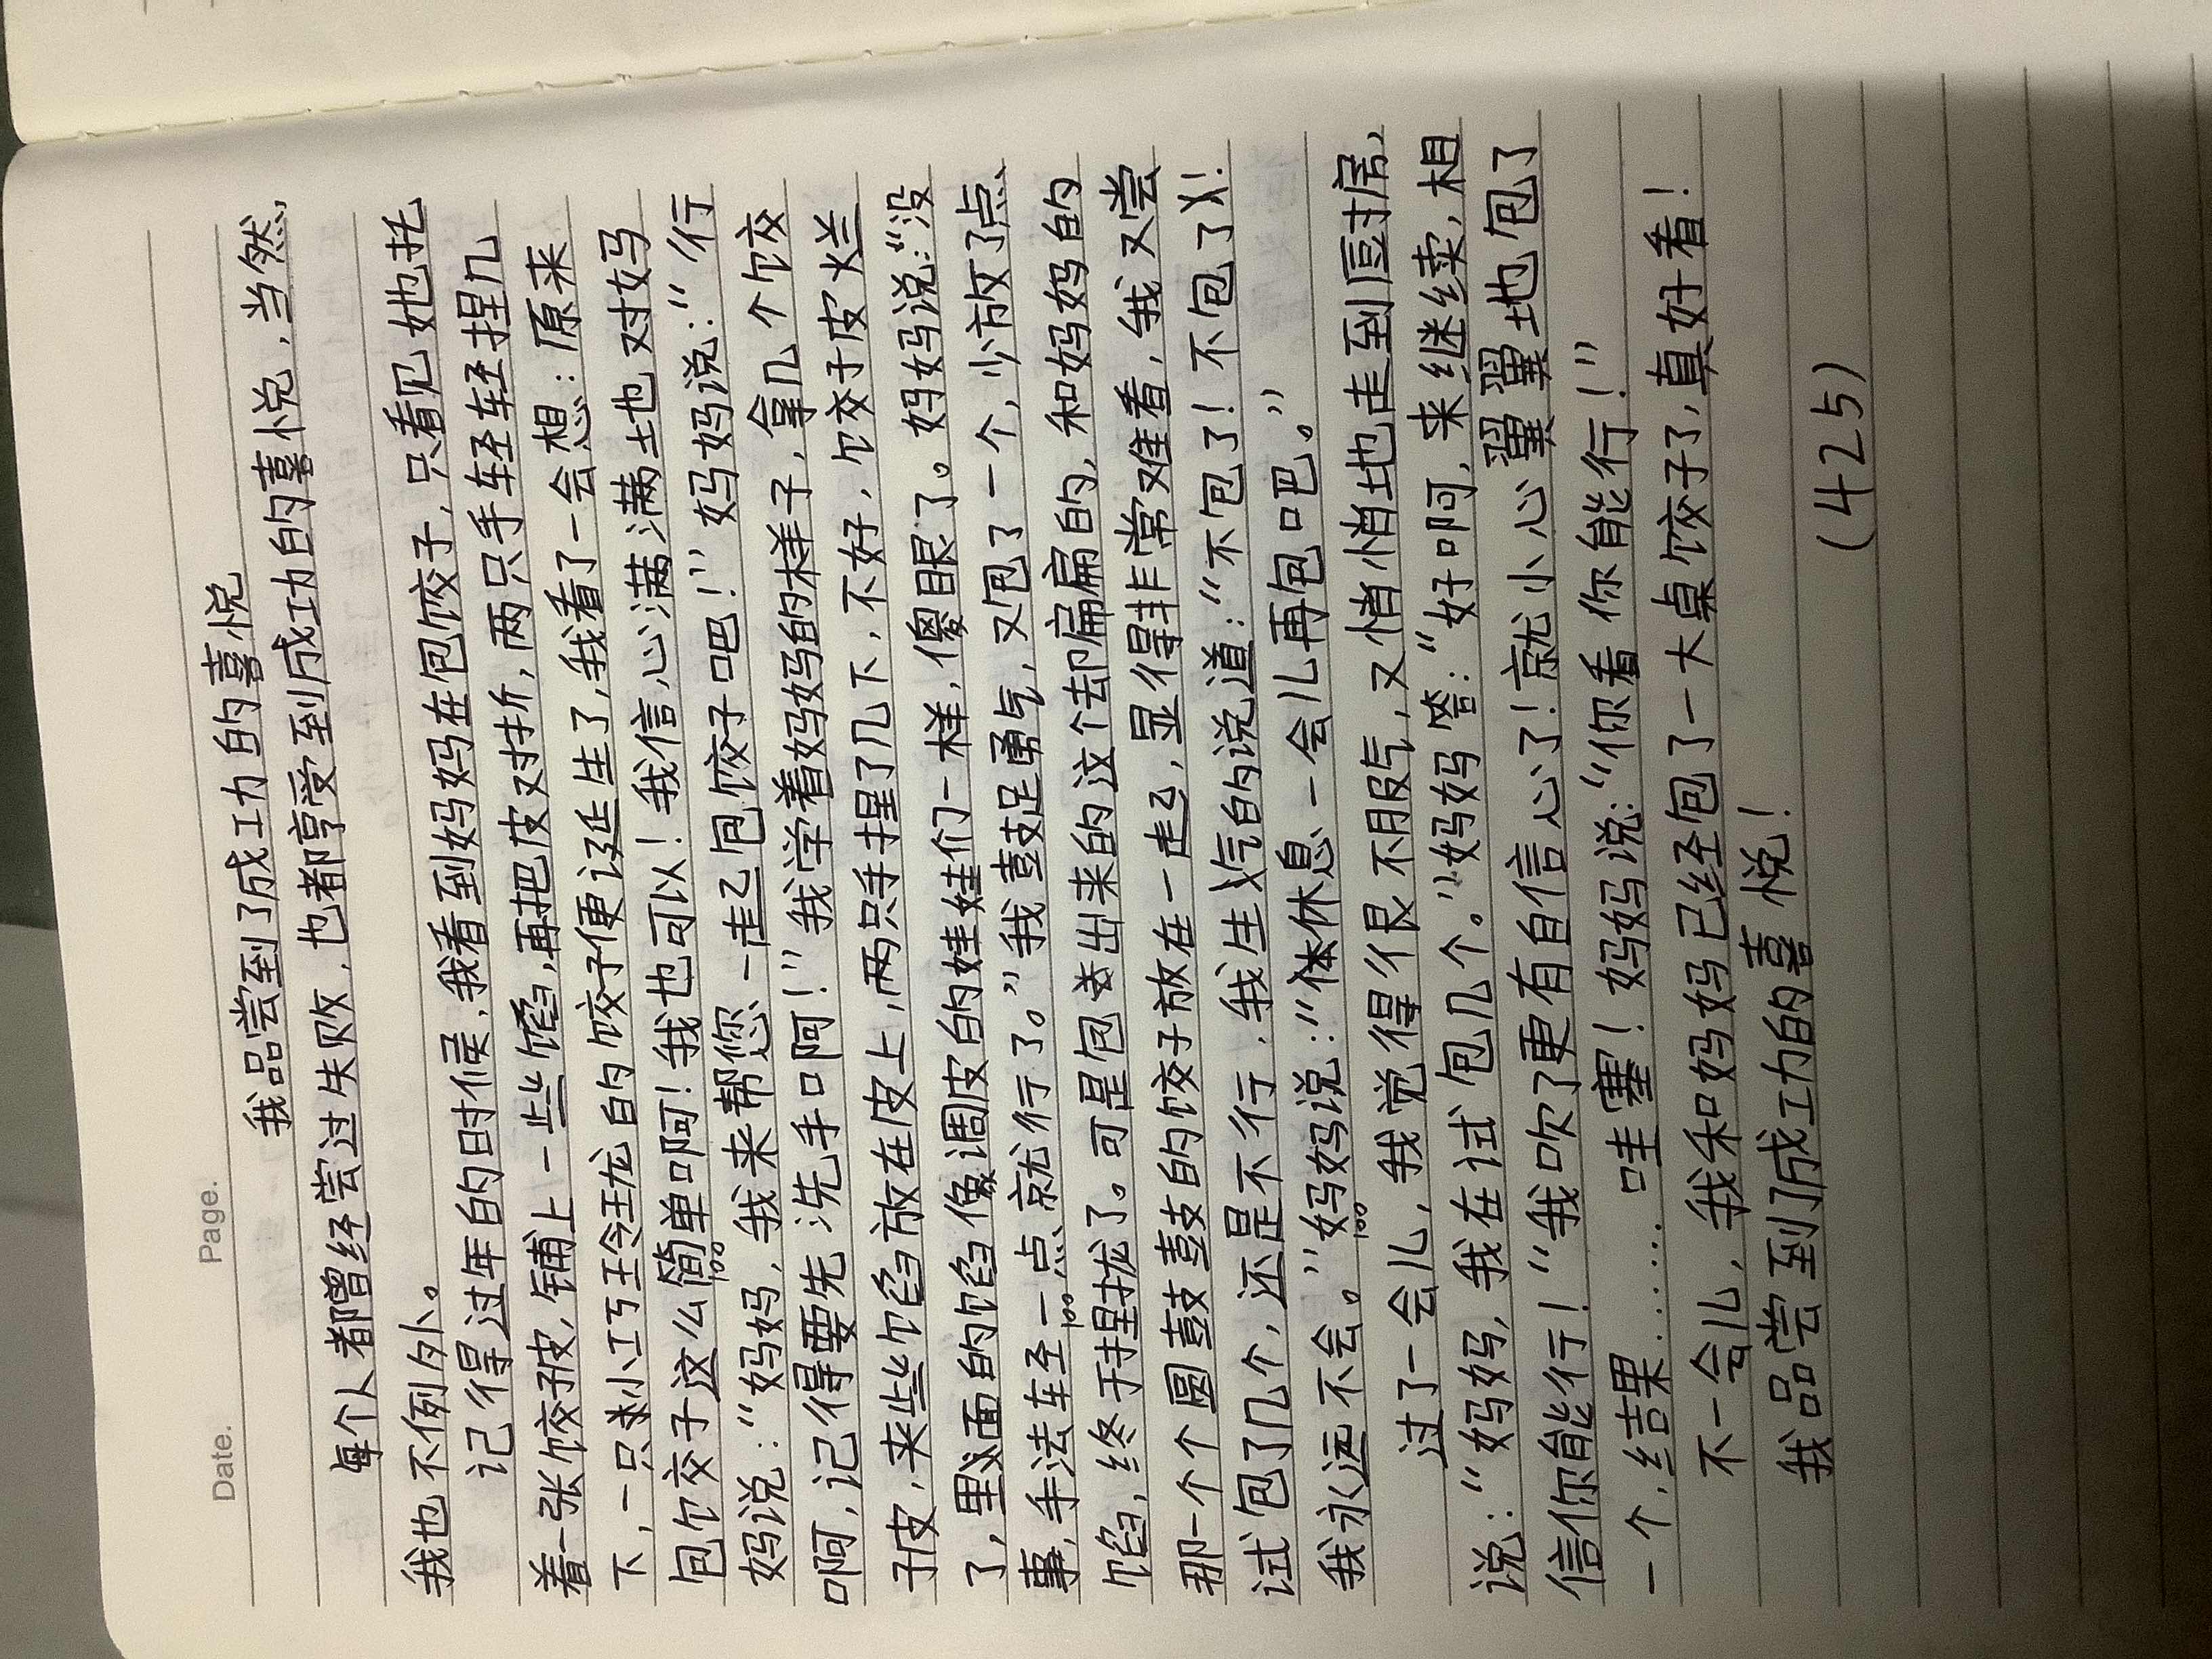 Date.
Page.
我品尝到了成功的喜悦
每个人都曾经尝过失败，也都享受到成功的喜悦，当然，
我也不例外。
记得过年的时候，我看到妈妈在包饺子，只看见她托
着一张饺子皮，铺上一些馅，再把皮对折，两只手轻轻捏几
下，一只小巧玲珑的饺子便诞生了，我看了一会想：原来
包饺子这么简单啊！我也可以！我信心满满地对妈
100
妈说：“妈妈，我来帮您一起包饺子吧！”妈妈说：“行
啊，记得要先洗手啊！”我学着妈妈的样子，拿几个饺
子皮，夹些馅放在皮上，两只手捏了几下，不好，饺子皮烂
了，里面的馅像调皮的娃娃们一样，傻眼了。妈妈说：“没
事，手法轻一点就行了。”我鼓足勇气，又包了一个，少放了点
100
馅，终于捏拢了。可是包出来的这个却扁扁的，和妈妈的
那一个个圆鼓鼓的饺子放在一起，显得非常难看，我又尝
试包了几个，还是不行，我生气的说道：“不包了！不包了！
我永远不会。”妈妈说：“休息一会儿再包吧。”
100
过了一会儿，我觉得很不服气，又悄悄地走到厨房，
说：“妈妈，我在试包几个。”妈妈答：“好啊，来继续，相
信你能行！”我吹了更有自信心了！就小心翼翼地包了
一个，结果……哇塞！妈妈说：“你看你能行！”
不一会儿，我和妈妈已经包了一大桌饺子了，真好看！
我品尝到了成功的喜悦！
（425）